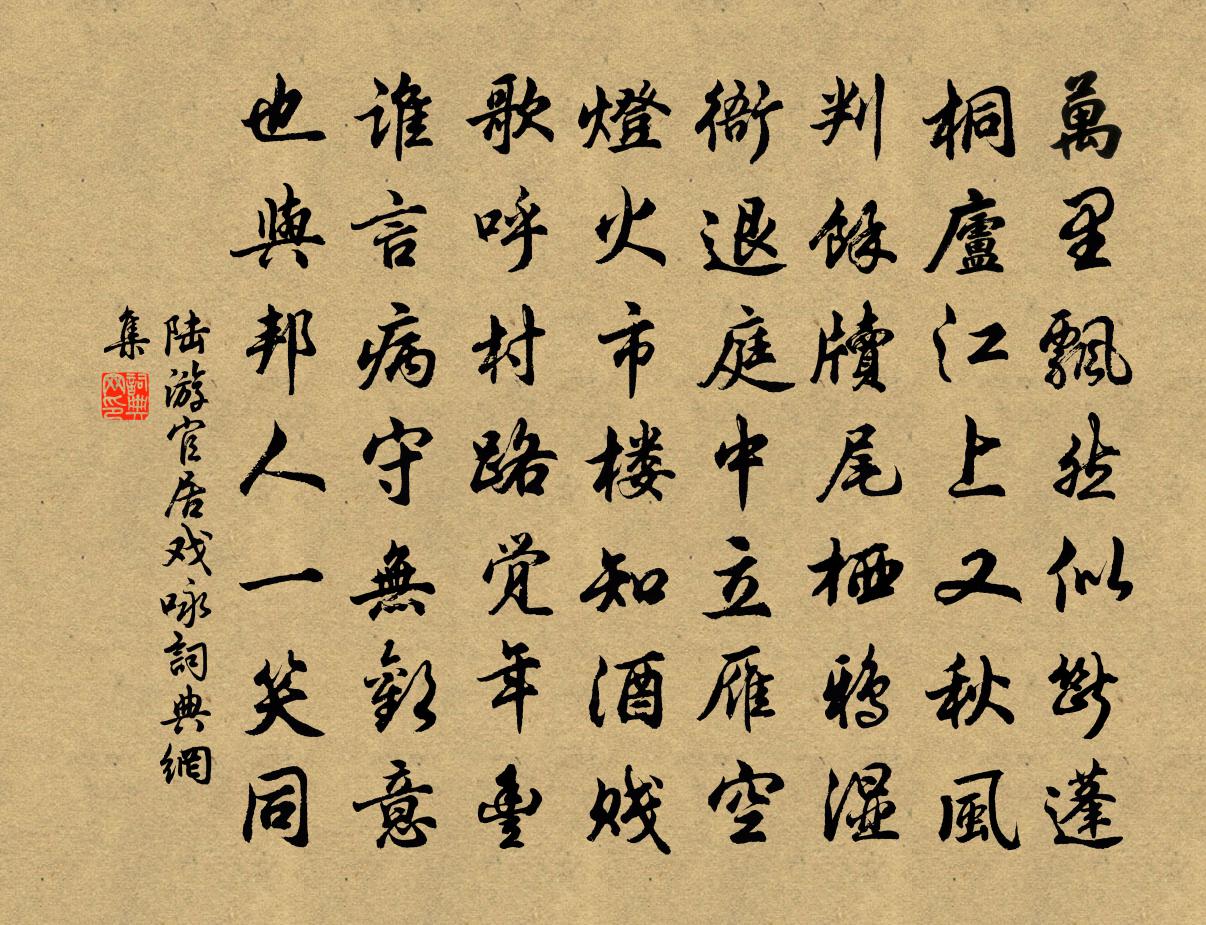 萬里飄然似斷蓬
桐廬江上又秋風
判餘牘尾栖鴉濕
衙退庭中立雁空
燈火市楼知酒賤
歌呼村路覺年豊
谁言病守無歡意
也與邦人一笑同
陆游官居戏咏詞典網
集
詞典網印